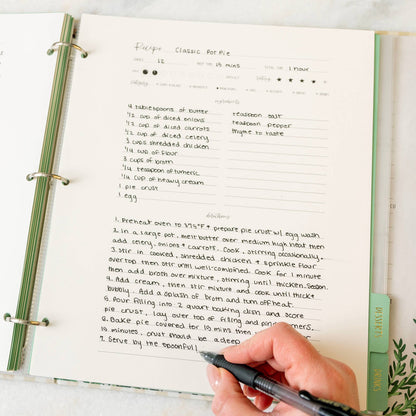 Recipe Classic Pot Pie
SERVES 12 PREP TIME 15 mins TOTAL TIME 1 hour
ingredients
4 tablespoons of butter
1/2 cup of diced onions
1/2 cup of diced carrots
1/2 cup of diced celery
3 cups shredded chicken
1/4 cup of flour
3 cups of broth
1/4 teaspoon of tumeric
1/4 cup of heavy cream
1 pie crust
1 egg
teaspoon salt
teaspoon pepper
thyme to taste
directions
1. Preheat oven to 375°F + prepare pie crust w/ egg wash
2. In a large pot, melt butter over medium high heat then
add celery, onions + carrots. Cook, stirring occasionally.
3. Stir in cooked, shredded chicken + sprinkle flour
over top then stir until well-combined. Cook for 1 minute
then add broth over mixture, stirring until thicken. Season.
4. Add cream, then stir mixture and cook until thick +
bubbly. Add a splash of broth and turn off heat.
5. Pour filling into 2 quart baking dish and score
pie crust, lay over top of filling and pinch corners.
6. Bake pie covered for 15 mins then
15 minutes, crust should be a deep
7. Serve by the spoonful!